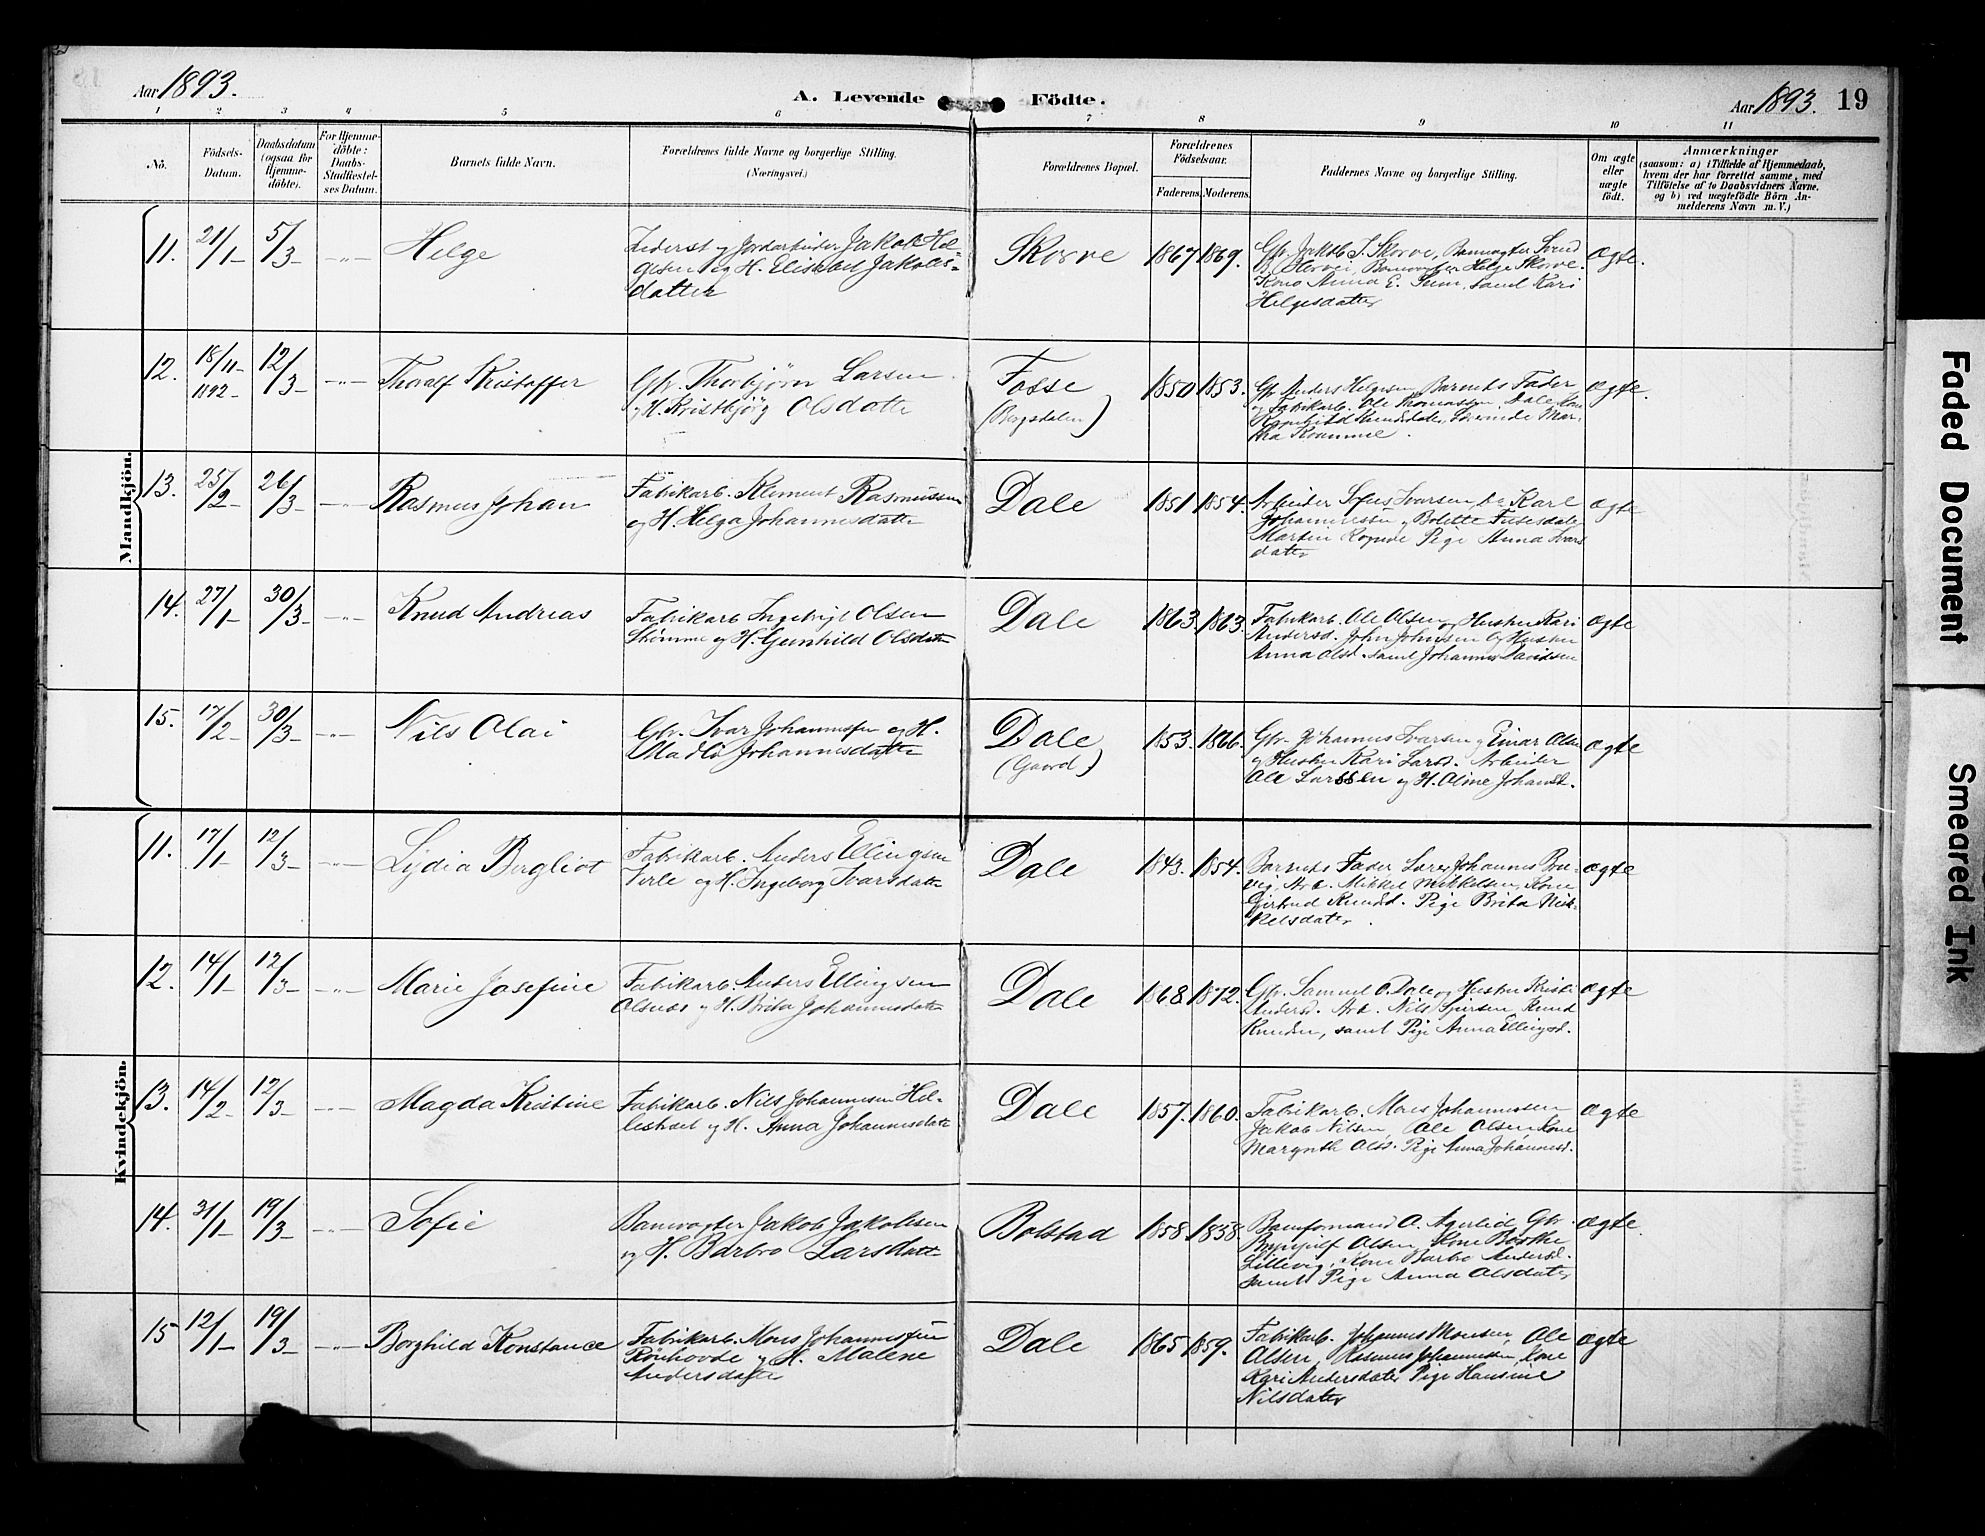 Aar 1893.
A. Levende Födte.
Aar 1893. 19
1 2 3 4 5 6 7 8 9 10 11
Nö.
Födsels-
Datum.
Daabsdatum
(ogsaa for
Hjemme-
döbte).
For Hjemme-
döbte:
Daabs-
Stadfæstel-
ses Datum.
Barnets fulde Navn.
Forældrenes fulde Navne og borgerlige Stilling.
(Næringsvei.)
Forældrenes Bopæl.
Forældrenes
Födselsaar.
Faderens. Moderens.
Faddernes Navne og borgerlige Stilling.
Om ægte
eller
uægte
födt.
Anmærkninger
(saasom: a) i Tilfælde af Hjemmedaab,
hvem der har forrettet samme, med
Tilföielse af to Daabsvidners Navne.
og b) ved uægtefödte Börn An-
melderens Navn m. V.)
Mandkjön.
11. 21/1 5/3 -"- Helge
og Jordarbeider Jakob Hel-
gesen og H. Elisabet Jakobs-
datter
Skorve 1867 1869.
Gbr. Jakob J. Skorve, Banevogter
Skorve, Banevogter Helge Skorve.
Kone Anna E. samt Kari
Helgesdatter
Ægte.
12. 18/11 1892 12/3 -"- Thoralf Kristoffer
Gbr. Thorbjørn Larsen
og H. Kristbjørg Olsdatter
Fosse
(Bergsdalen)
1850 1853.
Gbr Anders Helgesen, Barnets Fader
og Fabrikarb. Ole Thomassen Dale, Kone
Mar-
tha Kvamme.
ægte.
13. 25/2 26/3 -"- Rasmus Johan
Fabrikarb. Klement Rasmussen
og H. Helga Johannesdatter
Dale 1851 1854.
Arbeider Sofus Ivarsen, Karl
Johannessen og Bolette
Martin Pige Anna Ivars
datter
ægte
14. 27/1 30/3 -"- Knud Andreas
Fabrikarb. Olsen
og H. Gunhild Olsdatter
Dale 1863. 1863.
Fabrikarb. Ole Olsen og Hustru Kari
Andersd. John Johnsen og Hustru
Anna Olsd. samt Johannes Davidsen
ægte
15. 17/2 30/3 -"- Nils Olai
Gbr. Ivar Johannessen og H.
Madli Johannesdatter
Dale
(Gaard)
1853. 1866.
Gbr. Johannes Ivarsen og Einar Olsen
og Hustru Kari Larsd. Arbeider
Ole Larssen og H. Oline Johansd.
ægte
Kvindekjön.
11. 17/1 12/3 -"- Lydia Bergliot
Fabrikarb. Anders Ellingsen
og H. Ingeborg Ivarsdatter
Dale 1843. 1854.
Barnets Fader Johannes
Arb. Mikkel Mikkelsen, Kone
Gjertrud Knudsd. Pige Brita Mik-
kelsdatter.
ægte
12. 14/1 12/3 -"- Marie Josefine
Fabrikarb. Anders Ellingsen
og H. Brita Johannesdatter
Dale 1868. 1872.
Gbr. Samuel O. Dale og Hustru Kristi
Andersd. Arb. Nils Knud
Knudsen, samt Pige Anna Ellingsd.
ægte
13. 14/2 12/3 -"- Magda Kristine
Fabrikarb. Nils Johannesen Hel-
og H. Anna Johannesdatter
Dale 1857. 1860.
Fabrikarb. Mons Johannessen
Jakob Nilsen, Ole Olsen Kone
Margreth Olsd. Pige Anna Johannesd.
ægte
14. 31/1 19/3 -"- Sofie
Banevogter Jakob Jakobsen
og H. Barbro Larsdatter
Bolstad 1858. 1858.
Baneformand O. Gbr.
Olsen, Kone
Kone Barbro Andersd.
samt Pige Anna Olsdatter
ægte.
15 12/1 19/3 -"- Borghild Konstance
Fabrikarb. Mons Johannessen
og H. Malene
Andersdatter
Dale 1865 1859.
Fabrikarb. Johannes Monsen, Ole
Olsen, Rasmus Johannessen, Kone
Kari Andersdatter, Pige Hansine
Nilsdatter
ægte
Faded Document
Smeared Ink